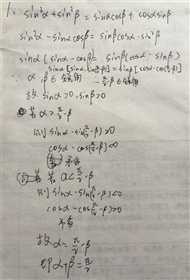 1. sin²α+sin²β = sinαcosβ + cosαsinβ
sin²α - sinαcosβ = sinβcosα - sin²β
sinα(sinα - cosβ) = sinβ(cosα - sinβ)
∵ α, β ∈ 锐角
故 sinα>0 sinβ>0
若 α > π/2 - β
则 sinα - sin(π/2-β) >0
cosα - cos(π/2-β) <0
若 α < π/2 - β
则 sinα - sin(π/2-β) <0
cosα - cos(π/2-β) >0
故 α = π/2 - β
即 α+β = π/2